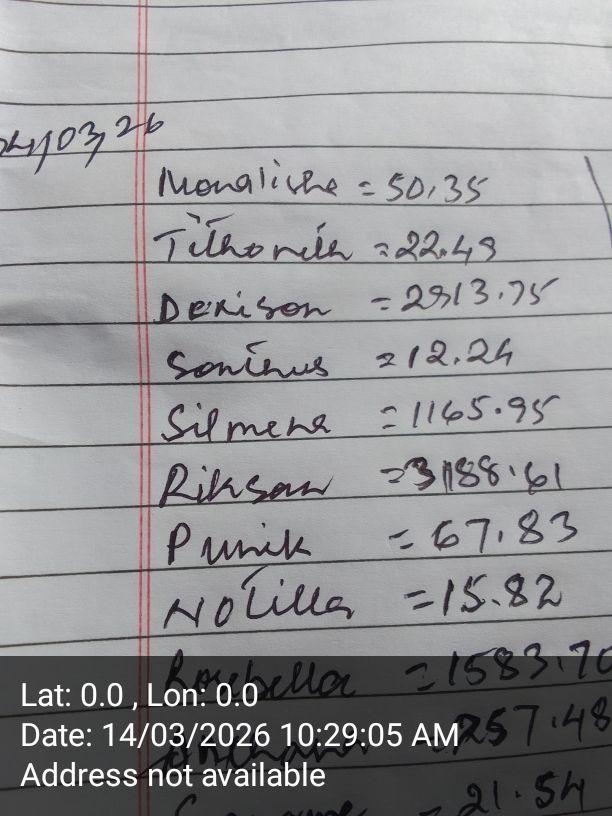 04,03,26
Monalishe = 50.35
Tithonih = 22.49
Denison = 2913.75
Sontinus = 12.24
Silmena = 1165.95
Riksan = 3188.61
Punik = 67.83
Notilla = 15.82
Rosebella = 1583.70
= 257.48
= 21.54
Lat: 0.0 , Lon: 0.0
Date: 14/03/2026 10:29:05 AM
Address not available